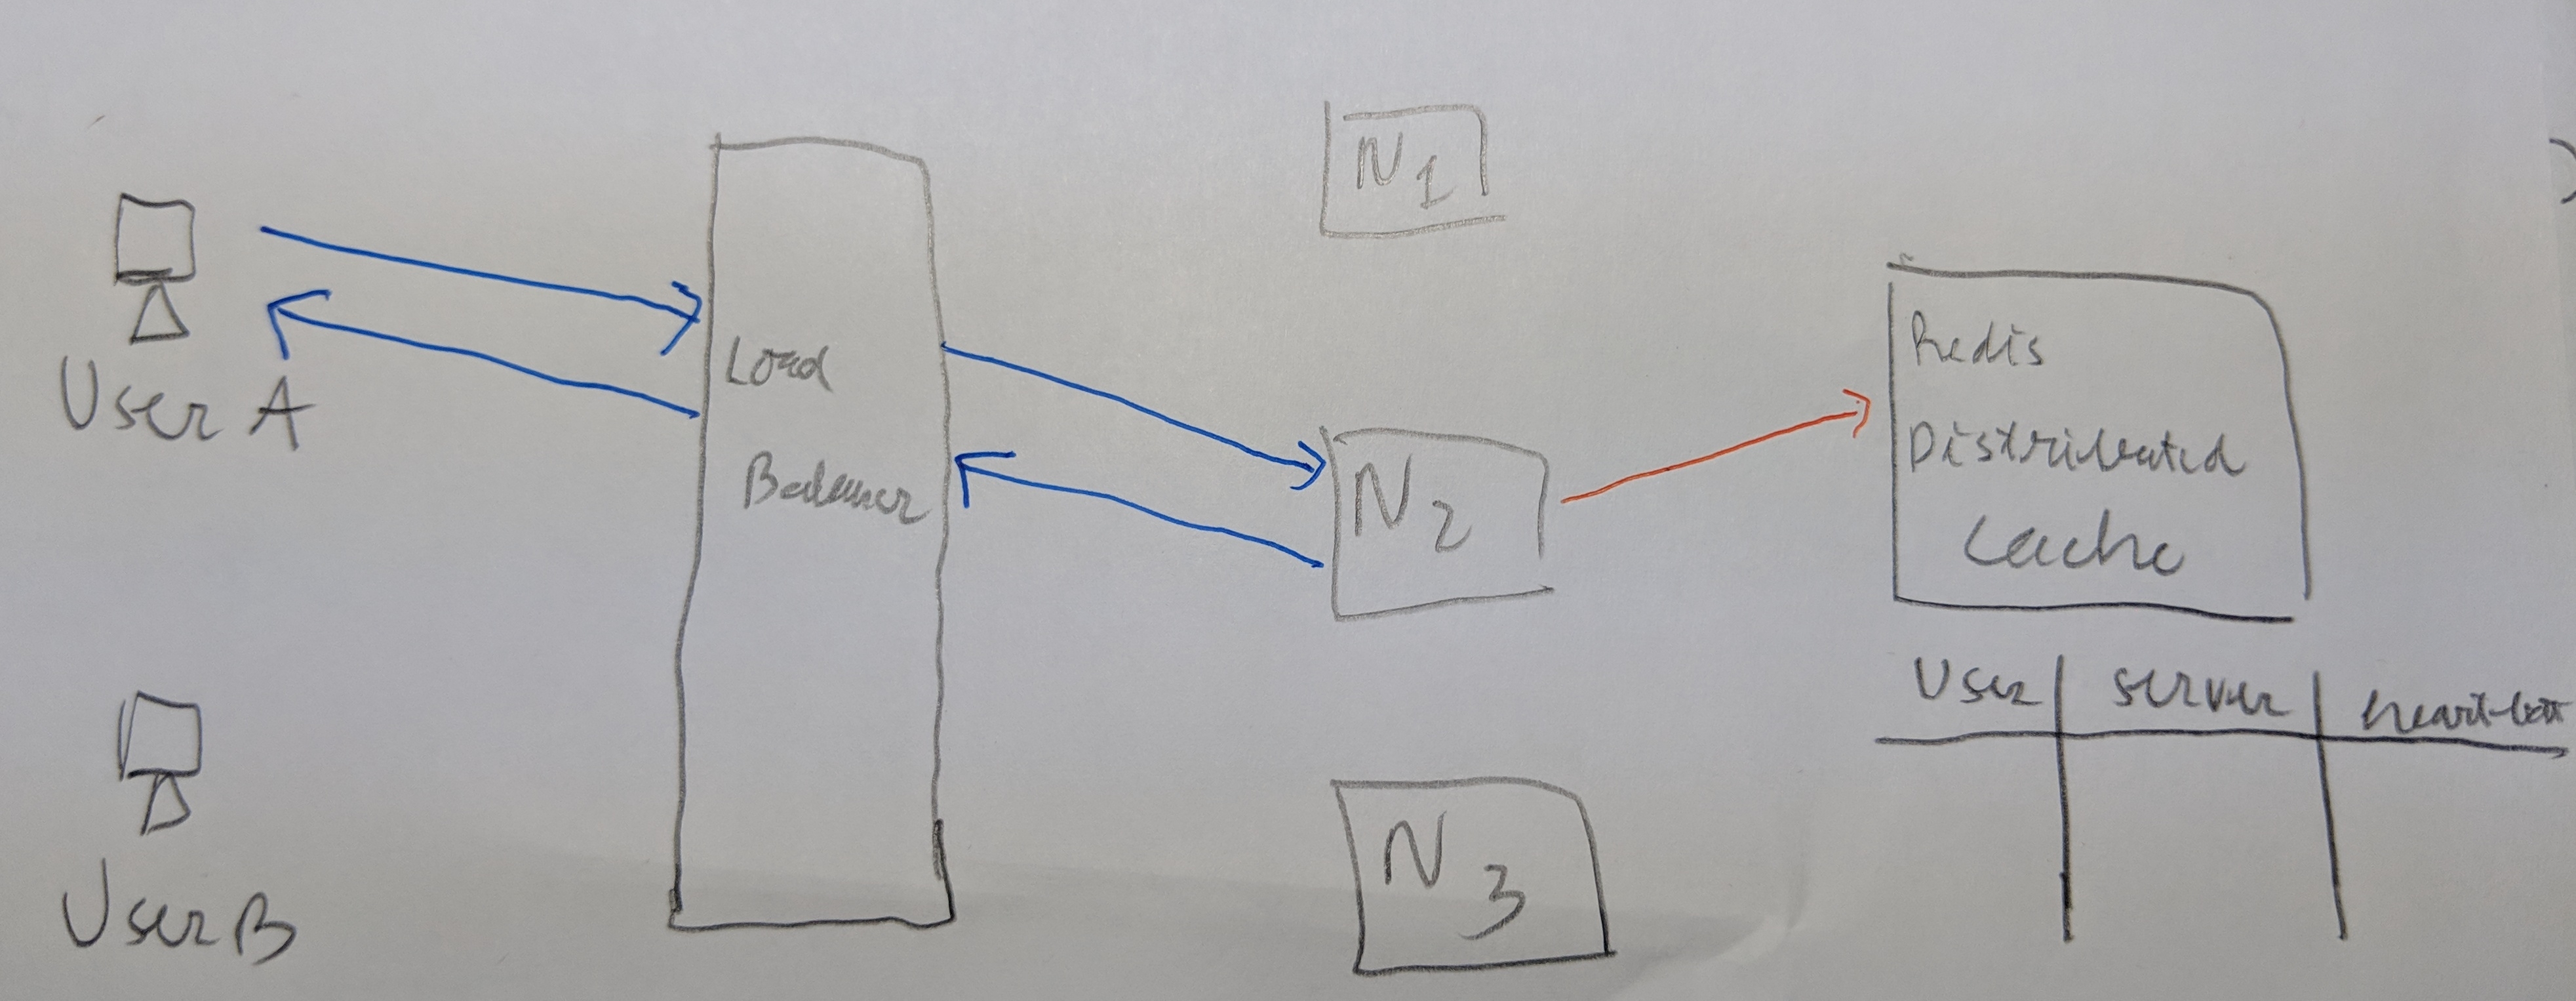 User A
User B
Load
Balancer
N1
N2
N3
Redis
Distributed
Cache
User server heart-beat